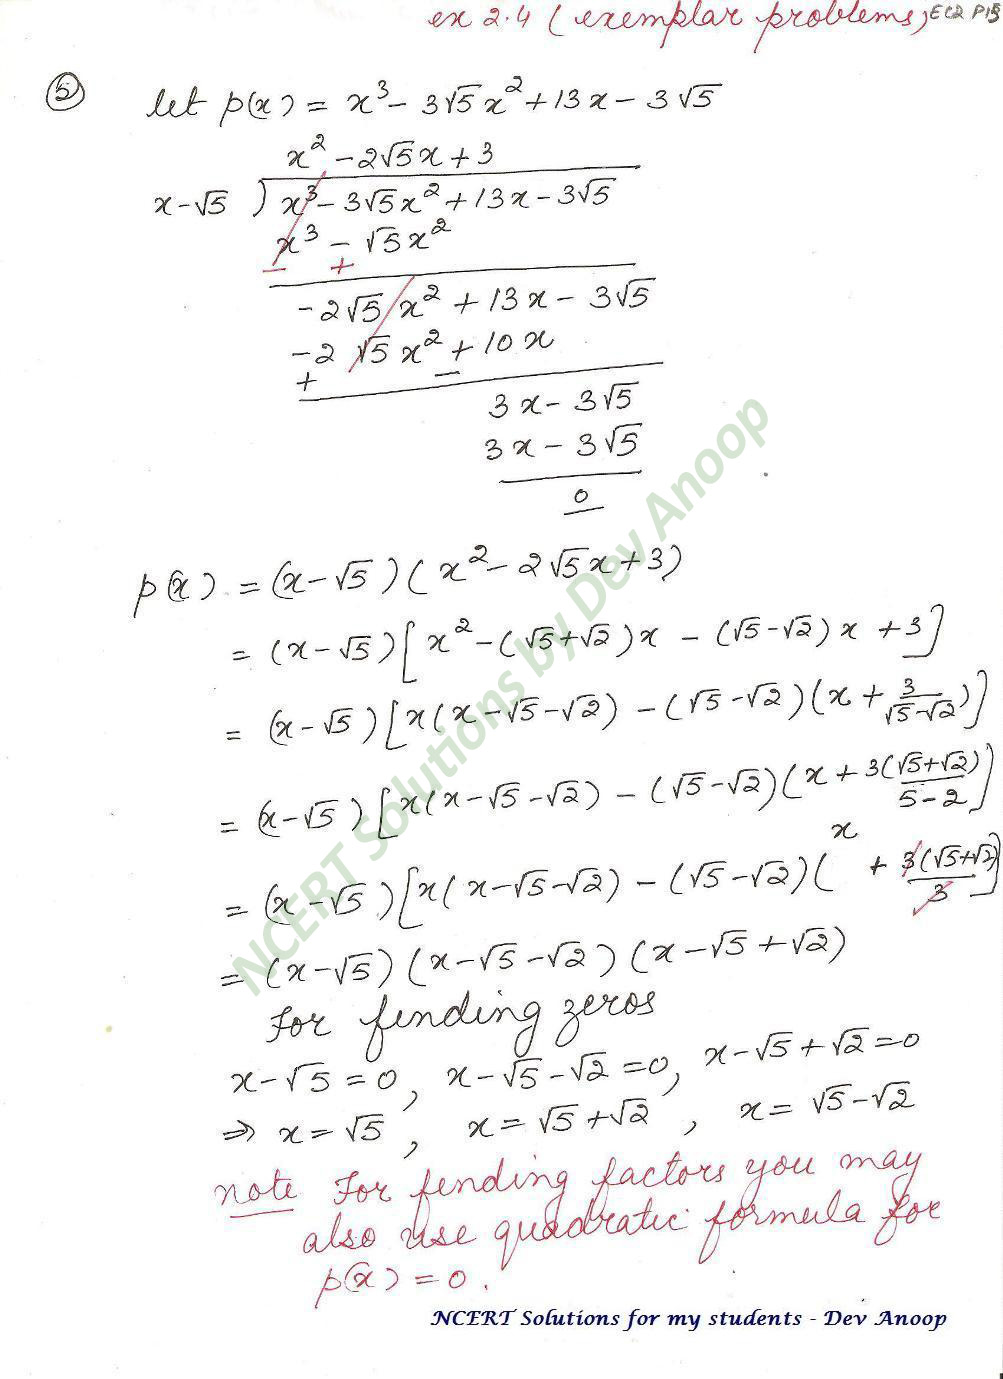 ex 2.4 (exemplar problems, EC2 P15
⑤ let p(x) = x³ - 3√5x² + 13x - 3√5
x² - 2√5x + 3
x-√5 ) x³ - 3√5x² + 13x - 3√5
x³ - √5x²
- +
-2√5x² + 13x - 3√5
-2√5x² + 10x
+ -
3x - 3√5
3x - 3√5
0
p(x) = (x-√5)(x² - 2√5x + 3)
= (x-√5)[x² - (√5+√2)x - (√5-√2)x + 3]
= (x-√5)[x(x-√5-√2) - (√5-√2)(x + 3/(√5-√2))]
= (x-√5)[x(x-√5-√2) - (√5-√2)(x + 3(√5+√2)/(5-2)]
= (x-√5)[x(x-√5-√2) - (√5-√2)(x + 3(√5+√2)/3)]
= (x-√5)(x-√5-√2)(x-√5+√2)
For fending zeros
x-√5 = 0, x-√5-√2 = 0, x-√5+√2 = 0
⇒ x = √5, x = √5+√2, x = √5-√2
note For fending factors you may
also use quadratic formula for
p(x) = 0.
NCERT Solutions for my students - Dev Anoop
NCERT Solutions by Dev Anoop